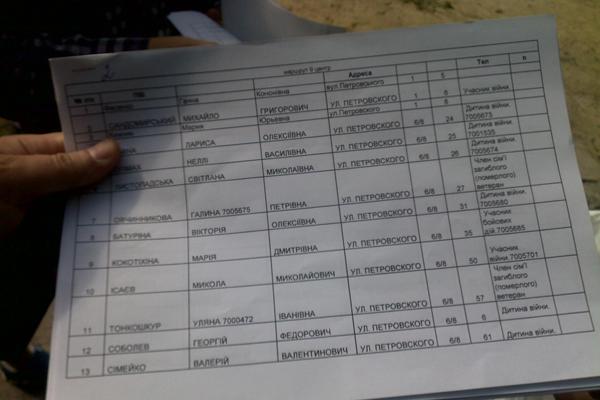 2
маршрут 9 центр
№ ПІБ Адреса Тел п
Ганна Кононівна вул.Петровського 1 5
САНДОМИРСЬКИЙ МИХАЙЛО ГРИГОРОВИЧ УЛ. ПЕТРОВСКОГО 1 6 Учасник війни
Мария Юрьевна ул.Петровского 1 6
ЛАРИСА ОЛЕКСІЇВНА УЛ. ПЕТРОВСКОГО 6/8 24 Дитина війни.
7005673
НЕЛЛІ ВАСИЛІВНА УЛ. ПЕТРОВСКОГО 6/8 25 Дитина війни.
7001535
ЛИСТОПАДСЬКА СВІТЛАНА МИКОЛАЇВНА УЛ. ПЕТРОВСКОГО 6/8 26 Дитина війни.
7005674
7 ОВЧИННИКОВА ГАЛИНА 7005675 ПЕТРІВНА УЛ. ПЕТРОВСКОГО 6/8 27 Член сім'ї
загиблого
(померлого)
ветеран
8 БАТУРІНА ВІКТОРІЯ ОЛЕКСІЇВНА УЛ. ПЕТРОВСКОГО 6/8 31 Дитина війни.
7005680
9 КОКОТІХІНА МАРІЯ ДМИТРІВНА УЛ. ПЕТРОВСКОГО 6/8 35 Учасник
бойових
дій.7005685
10 ІСАЄВ МИКОЛА МИКОЛАЙОВИЧ УЛ. ПЕТРОВСКОГО 6/8 50 Учасник
війни.7005701
11 ТОНКОШКУР УЛЯНА 7000472 ІВАНІВНА УЛ. ПЕТРОВСКОГО 6/8 57 Член сім'ї
загиблого
(померлого)
ветеран
12 СОБОЛЕВ ГЕОРГІЙ ФЕДОРОВИЧ УЛ. ПЕТРОВСКОГО 6/8 6 Дитина війни.
13 СІМЕЙКО ВАЛЕРІЙ ВАЛЕНТИНОВИЧ УЛ. ПЕТРОВСКОГО 6/8 61 Дитина війни.